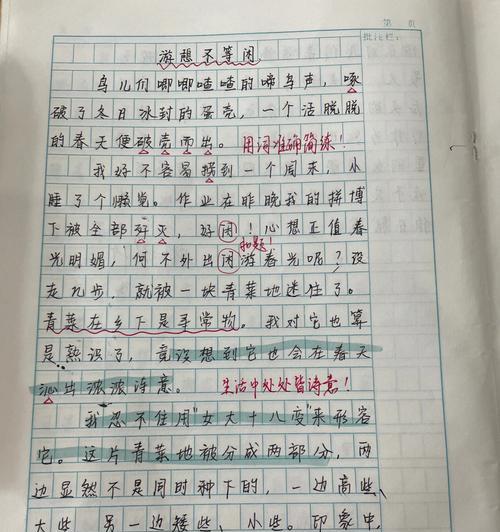 第 页
批注栏：
游想不等闲
鸟儿们唧唧喳喳的啼鸟声，啄
破了冬日冰封的蛋壳，一个活脱脱
的春天便破壳而出。用词准确简练！
我好不容易捞到一个周末，小
睡了个懒觉。作业在昨晚我的拼搏
下被全部歼灭，好闲！心想正值春
扣题！
光明媚，何不外出闲游春光呢？没
走几步，就被一块青菜地迷住了。
青菜在乡下是寻常物。我对它也算
是熟识了，竟没想到它也会在春天
沁出浓浓诗意。生活中处处皆诗意！
我忍不住用“女大十八变”来形容
它。这片青菜地被分成两部分，两
边显然不是同时种下的，一边高些、
大些，另一边矮些、小些。印象中